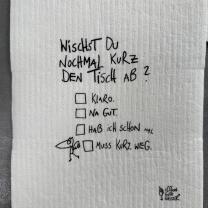 Wischst du
nochmal kurz
den Tisch ab?
Klaro.
Na gut.
Hab ich schon mal
Muss kurz weg.